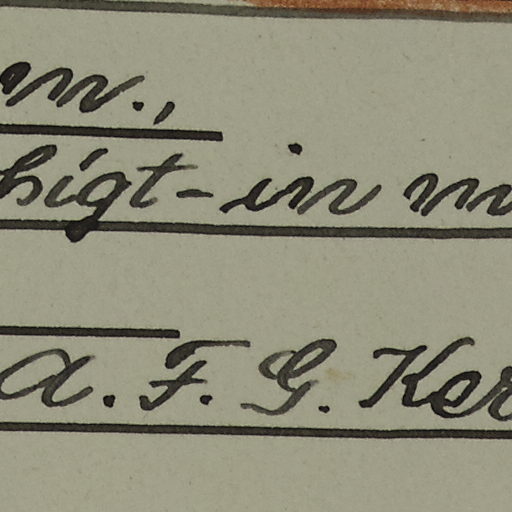 m.,
higt - in m
A. F. G. Ker